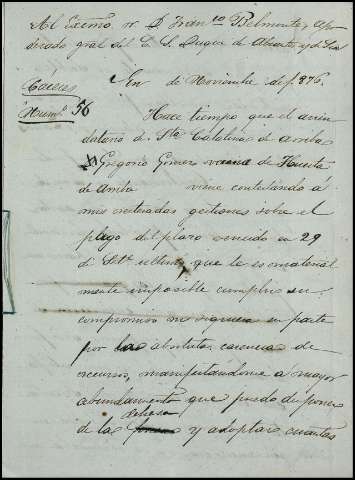 Al Excmo Sr D Franco Belmonte, Apo
derado gral del E. S. Duque de Abrantes y de Lin
Cáceres
En de Noviembre de 1876.
Num.o 56
Hace tiempo que el arren
datario de Sta Catalina de arriba
Gregorio Gomez de Huerta
de arriba viene contestando a
mis reiteradas gestiones sobre el
pago del plazo vencido en 29
de Stbre ultimo, que le es material
mente imposible cumplir su
compromiso ni siquiera en parte
por la absoluta carencia de
recursos, manifestandome a mayor
abundamiento que puedo disponer
dehesa
de la y adoptar cuantas